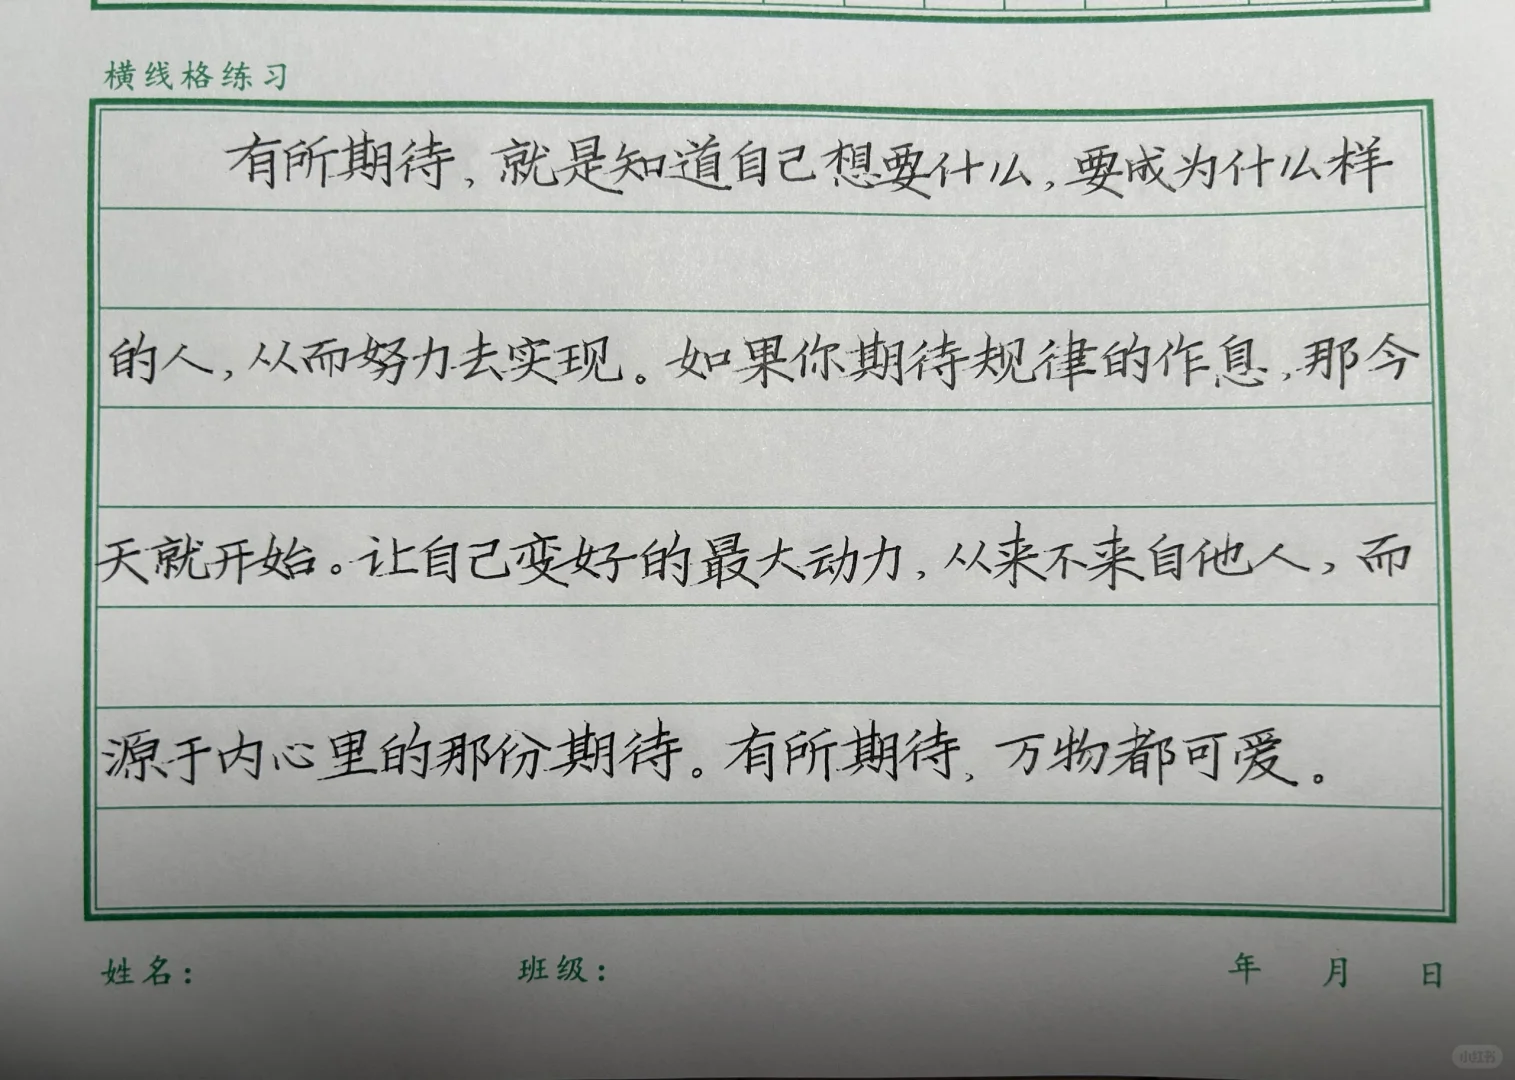 横线格练习
有所期待，就是知道自己想要什么，要成为什么样
的人，从而努力去实现。如果你期待规律的作息，那今
天就开始。让自己变好的最大动力，从来不来自他人，而
源于内心里的那份期待。有所期待，万物都可爱。
姓名： 班级： 年 月 日
小红书